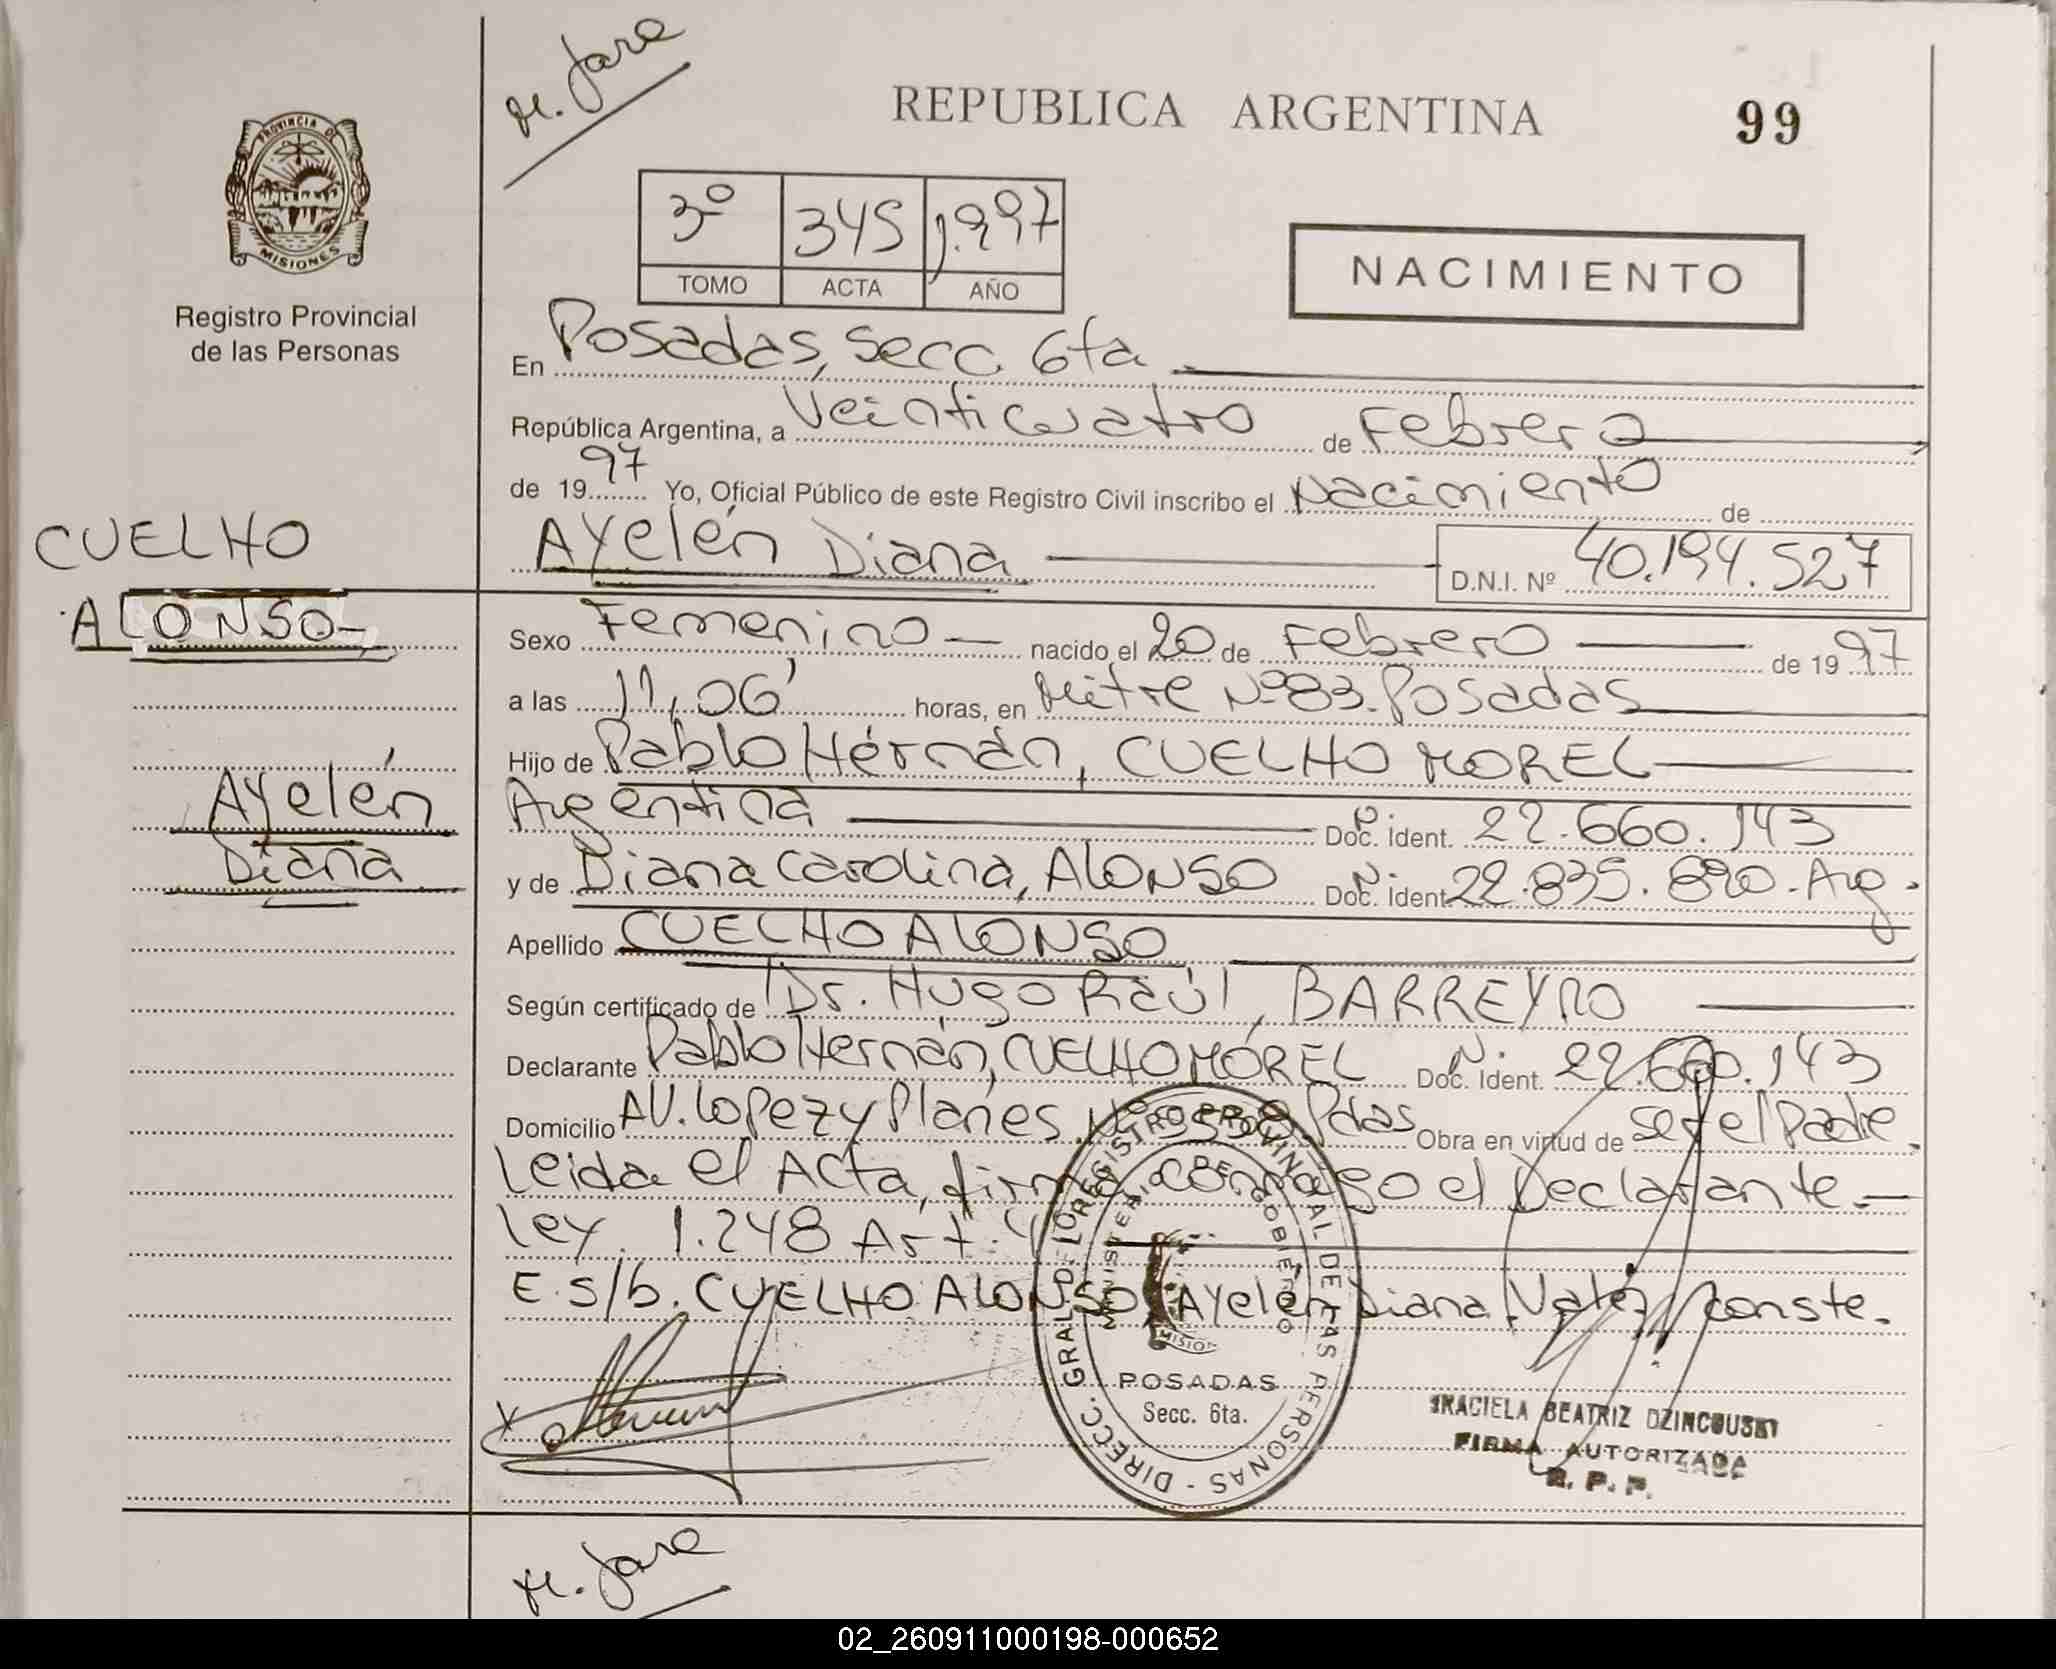 M. Jara
REPUBLICA ARGENTINA
99
PROVINCIA DE
MISIONES
Registro Provincial
de las Personas
3º 345 1.997
TOMO ACTA AÑO
NACIMIENTO
En Posadas, Secc. 6ta
República Argentina, a Veinticuatro de Febrero
de 1997 Yo, Oficial Público de este Registro Civil inscribo el Nacimiento de
Ayelén Diana D.N.I. Nº 40.194.527
CUELHO
ALONSO
Ayelén
Diana
Sexo Femenino nacido el 20 de Febrero de 1997
a las 11,06' horas, en Mitre Nº 83. Posadas
Hijo de Pablo Hernán, CUELHO MOREL
Argentina Doc. Ident. 22.660.143
y de Diana Carolina, ALONSO Doc. Ident. 22.835.890. Arg.
Apellido CUELHO ALONSO
Según certificado de Dr. Hugo Raúl, BARREYRO
Declarante Pablo Hernán, CUELHO MOREL Doc. Ident. 22.660.143
Domicilio AV. Lopez y Planes Nº Pdas Obra en virtud de ser el Padre.
Leida el Acta, firma conmigo el Declarante.
Ley. 1.248 Art. 4
E. s/b. CUELHO ALONSO, Ayelén Diana. Vale, conste.
DIRECC. GRAL. DE REGISTRO PROVINCIAL DE LAS PERSONAS
MINISTERIO DE GOBIERNO
POSADAS
Secc. 6ta.
GRACIELA BEATRIZ DZINCOUSKI
FIRMA AUTORIZADA
R. P. P.
M. Jara
02_260911000198-000652